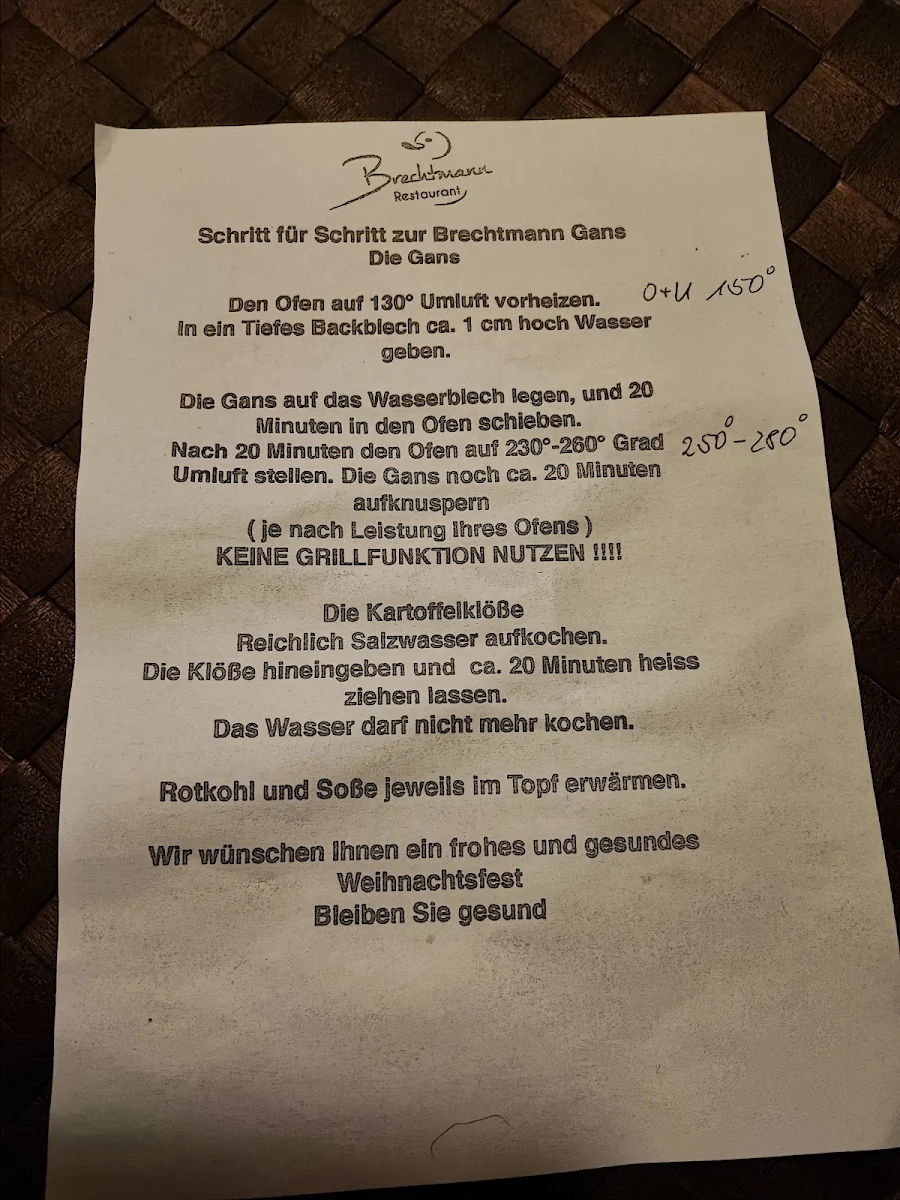 Brechtmann
Restaurant
Schritt für Schritt zur Brechtmann Gans
Die Gans
Den Ofen auf 130° Umluft vorheizen. O+U 150°
In ein Tiefes Backblech ca. 1 cm hoch Wasser
geben.
Die Gans auf das Wasserblech legen, und 20
Minuten in den Ofen schieben.
Nach 20 Minuten den Ofen auf 230°-260° Grad 250°-280°
Umluft stellen. Die Gans noch ca. 20 Minuten
aufknuspern
( je nach Leistung Ihres Ofens )
KEINE GRILLFUNKTION NUTZEN !!!!
Die Kartoffelklöße
Reichlich Salzwasser aufkochen.
Die Klöße hineingeben und ca. 20 Minuten heiss
ziehen lassen.
Das Wasser darf nicht mehr kochen.
Rotkohl und Soße jeweils im Topf erwärmen.
Wir wünschen Ihnen ein frohes und gesundes
Weihnachtsfest
Bleiben Sie gesund